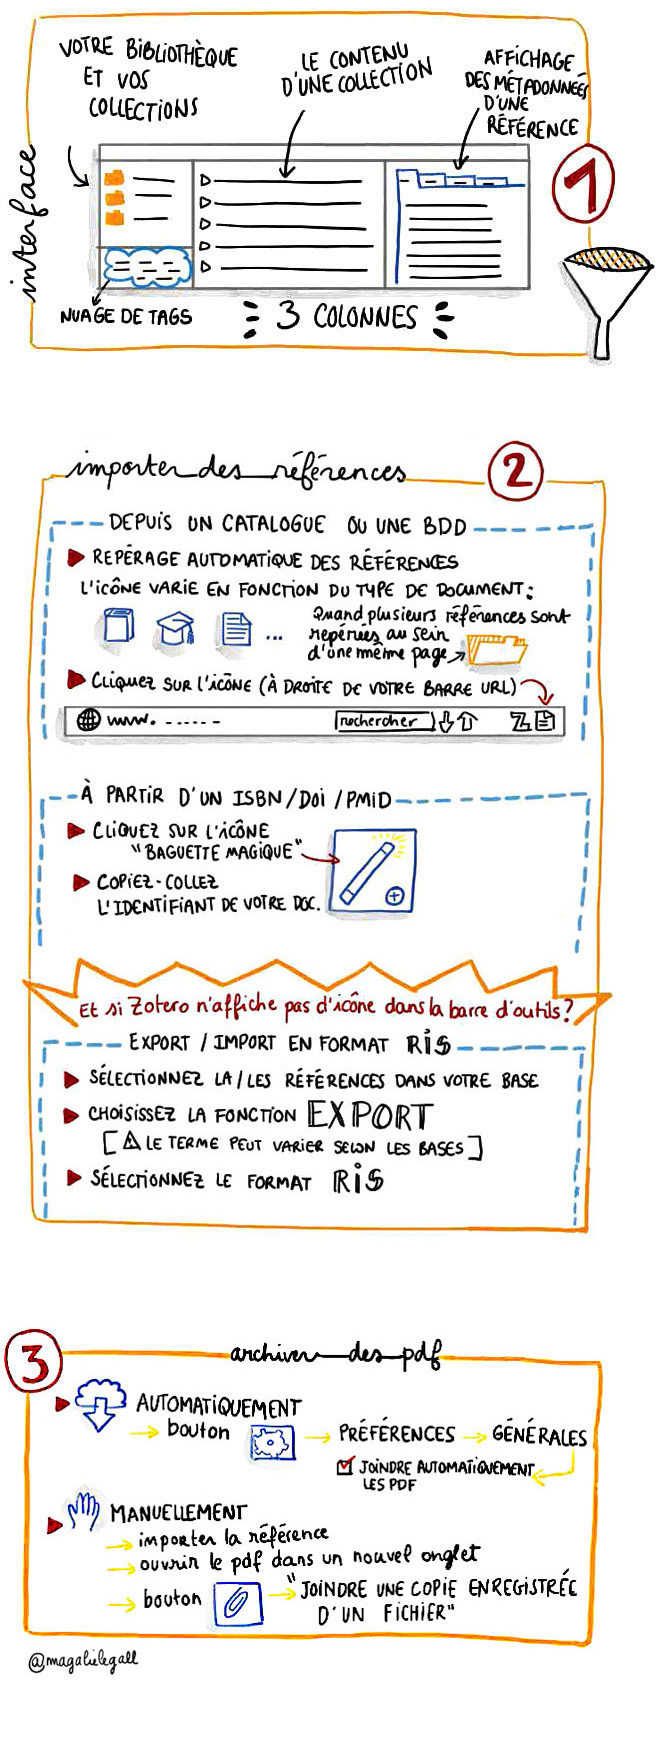 interface
VOTRE BIBLIOTHÈQUE
ET VOS
COLLECTIONS
LE CONTENU
D'UNE COLLECTION
AFFICHAGE
DES MÉTADONNÉES
D'UNE
RÉFÉRENCE
1
NUAGE DE TAGS
3 COLONNES
importer des références
2
DEPUIS UN CATALOGUE OU UNE BDD
REPÉRAGE AUTOMATIQUE DES RÉFÉRENCES
L'ICÔNE VARIE EN FONCTION DU TYPE DE DOCUMENT :
...
Quand plusieurs références sont
repérées au sein
d'une même page
CLIQUEZ SUR L'ICÔNE (À DROITE DE VOTRE BARRE URL)
www. ------
rechercher
Z
À PARTIR D'UN ISBN/DOI/PMID
CLIQUEZ SUR L'ICÔNE
"BAGUETTE MAGIQUE"
COPIEZ-COLLEZ
L'IDENTIFIANT DE VOTRE DOC.
Et si Zotero n'affiche pas d'icône dans la barre d'outils?
EXPORT / IMPORT EN FORMAT RIS
SÉLECTIONNEZ LA/LES RÉFÉRENCES DANS VOTRE BASE
CHOISISSEZ LA FONCTION EXPORT
[⚠ LE TERME PEUT VARIER SELON LES BASES]
SÉLECTIONNEZ LE FORMAT RIS
3
archiver des pdf
AUTOMATIQUEMENT
bouton
PRÉFÉRENCES
GÉNÉRALES
JOINDRE AUTOMATIQUEMENT
LES PDF
MANUELLEMENT
importer la référence
ouvrir le pdf dans un nouvel onglet
bouton
"JOINDRE UNE COPIE ENREGISTRÉE
D'UN FICHIER"
@magalielegall